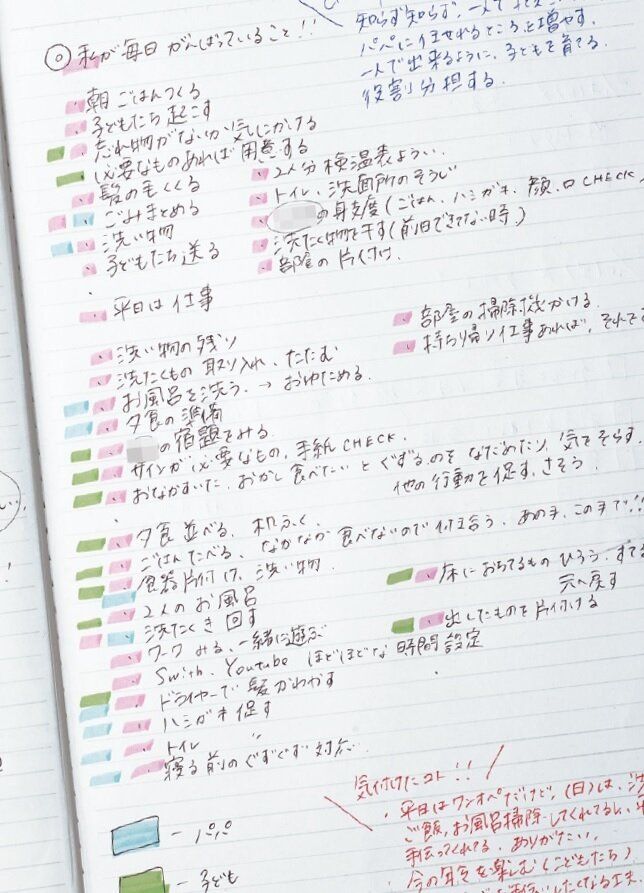 知らず知らず、一人で
パパに任せれるところを増やす。
一人で出来るように、子どもを育てる。
役割分担する。
◎ 私が毎日 がんばっていること!!
・朝ごはんつくる
・子どもたち起こす
・忘れ物がないか気にかける
・必要なものあれば用意する
・髪の毛くくる
・ごみまとめる
・洗い物
・子どもたち送る
・2人分検温表ようい
・トイレ、洗面所のそうじ
の身支度(ごはん、ハミガキ、顔、口CHECK
・洗たく物を干す(前日できてない時)
・部屋の片付け
・平日は仕事
・洗い物の残り
・洗たくもの取り入れ、たたむ
・お風呂を洗う→おゆためる
・夕食の準備
・部屋の掃除機かける
・持ち帰り仕事あれば、それ
の宿題をみる
・サインが必要なもの、手紙CHECK
・おなかすいた、おかし食べたいとぐずるのをなだめたり、気をそらす、
他の行動を促す、さそう
・夕食並べる、机ふく
・ごはんたべる、なかなか食べないので付き合う、あの手、この手で!!
・食器片付け、洗い物
・2人のお風呂
・洗たくき回す
・ワークみる、一緒に遊ぶ
・Swith、Youtube ほどほどな時間設定
・ドライヤーで髪かわかす
・ハミガキ促す
・トイレ 〃
・寝る前のぐずぐず対応
・床におちてるものひろう、すてる
元へ戻す
・出したものを片付ける
ーパパ
ー子ども
気付けたコト!!
・平日はワンオペだけど、(日)は、洗
ご飯、お風呂掃除してくれてるし、
手伝ってくれてる。ありがたい。
・今の年を楽しむ(こどもたち)